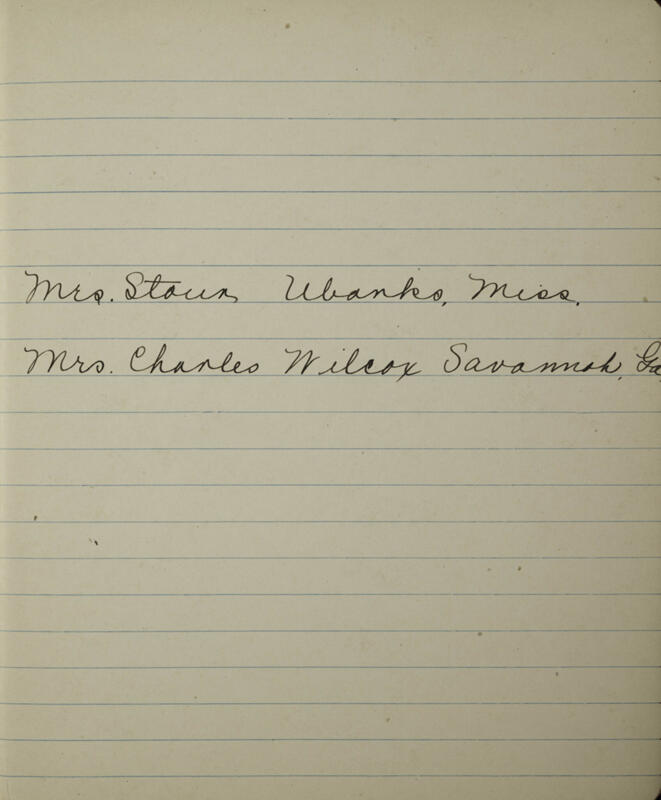 Mrs. Staun Ubanks, Miss.
Mrs. Charles Wilcox Savannah, Ga